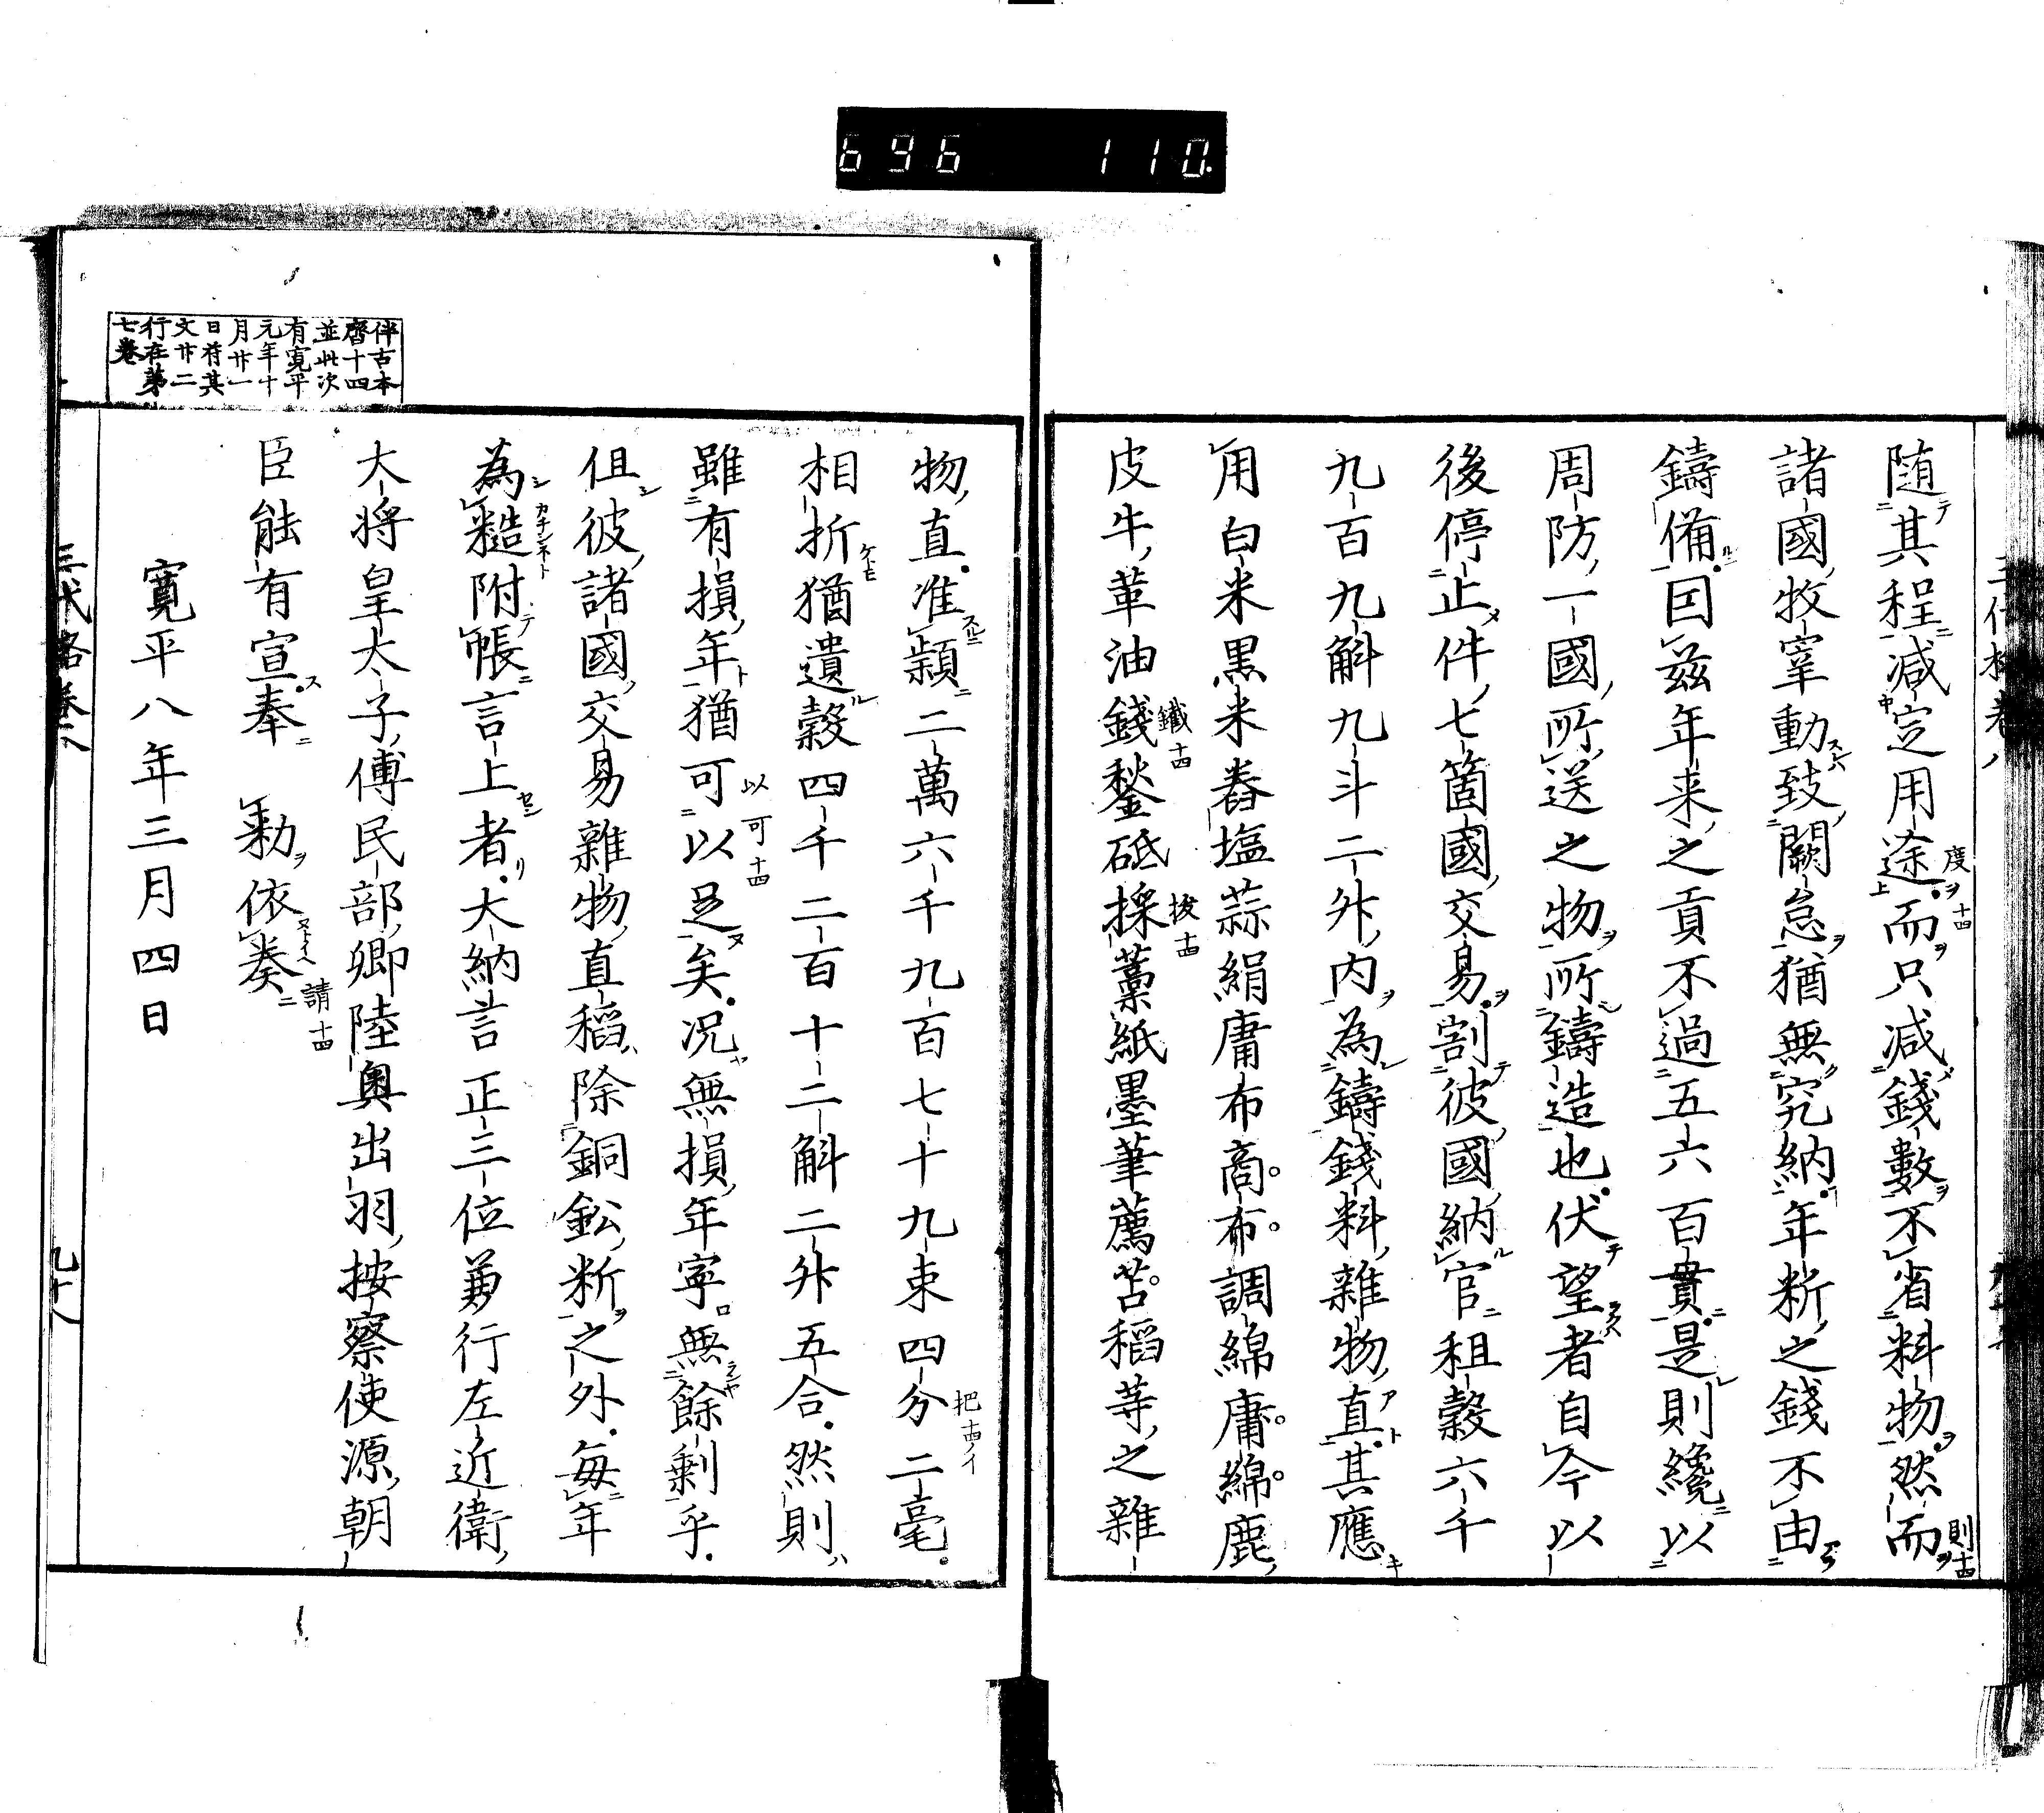 696 110
随其程減定用途而只減錢數不省料物然而
諸國牧宰動致闕怠猶無究納年新之錢不由
鑄備因茲年来之貢不過五六百貫是則纔以
周防一國所送之物所鑄造也伏望者自今以
後停止件七箇國交易割彼國納官租穀六千
九百九斛九斗二升内為鑄錢料雜物直其應
用白米黒米舂塩蒜絹庸布商布調綿庸綿鹿
皮牛革油錢鍫砥採藁紙墨筆薦苫稲等之雜
伴古本
齋十四
並此次
有寛平
元年十
月廿一
日符其
文廿二
行在第
七巻
物直准頴二萬六千九百七十九束四分二毫
相折猶遺穀四千二百十二斛二升五合然則
雖有損年猶可以足矣况無損年寧無餘剰乎
但彼諸國交易雜物直稲除銅鈆新之外毎年
為糙附帳言上者大納言正三位兼行左近衛
大将皇太子傅民部卿陸奥出羽按察使源朝
臣能有宣奉　勅依奏
寛平八年三月四日